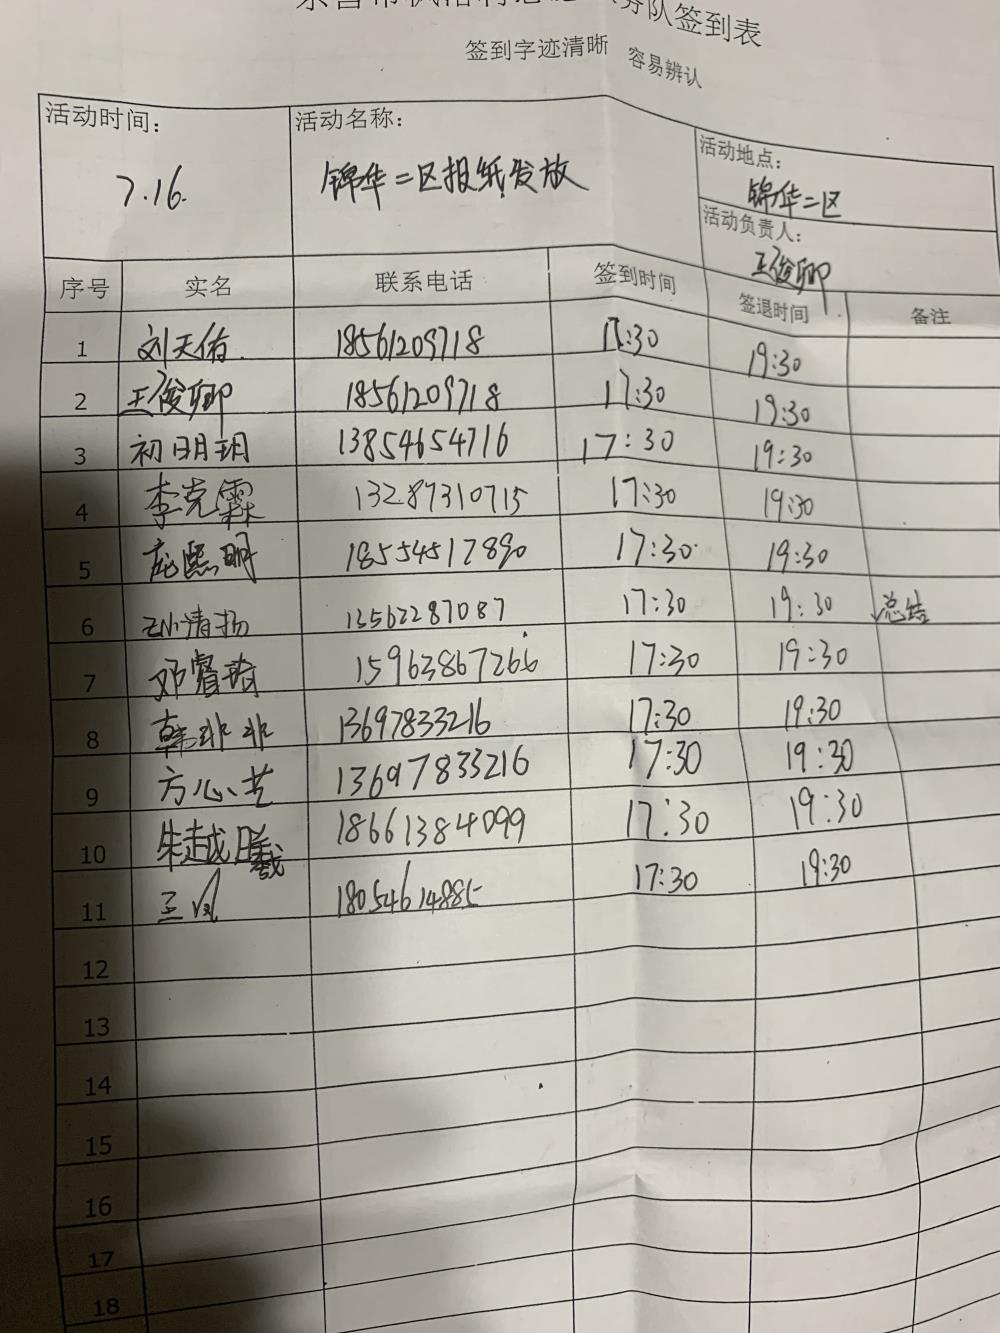 务队签到表
签到字迹清晰 容易辨认
活动时间： 活动名称： 活动地点：
7.16. 锦华二区报纸发放 锦华二区
活动负责人：
王俊卿
序号 实名 联系电话 签到时间 签退时间 备注
1 刘天佑 18561209718 17:30 19:30
2 王俊卿 18561209718 17:30 19:30
3 初明玥 13854654716 17:30 19:30
4 李克霖 13287310715 17:30 19:30
5 庞熙明 18554517890 17:30 19:30
6 清扬 13562287087 17:30 19:30 总结
7 邓睿琦 15963867266 17:30 19:30
8 韩非非 13697833216 17:30 19:30
9 方心艺 13697833216 17:30 19:30
10 朱越曦 18661384099 17:30 19:30
11 王凤 18054614885 17:30 19:30
12
13
14
15
16
17
18